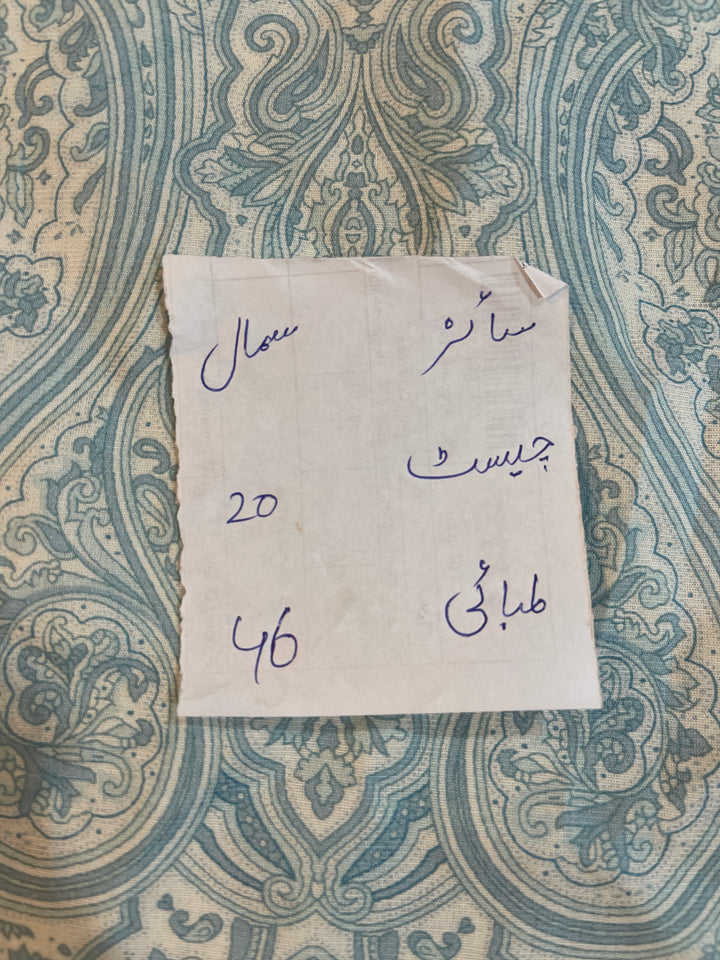 سائز سمال
چیسٹ 20
لمبائی 46